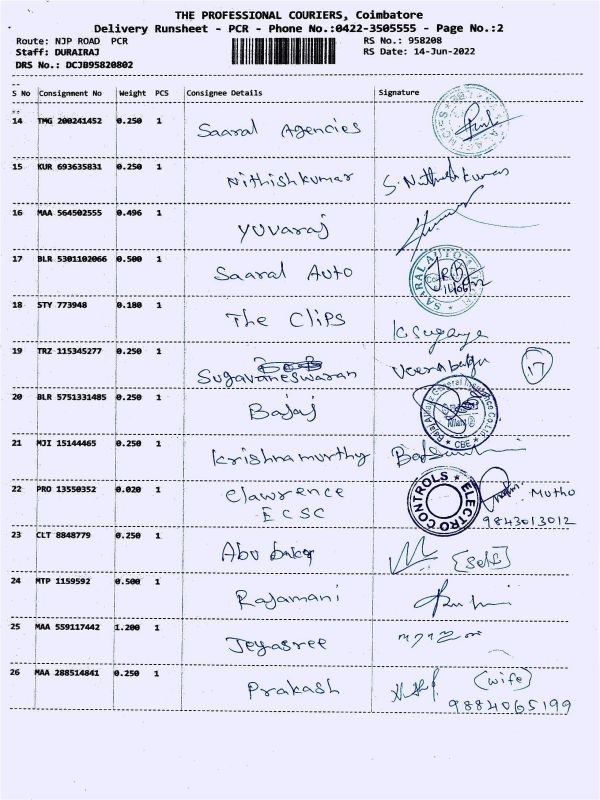 THE PROFESSIONAL COURIERS, Coimbatore
Delivery Runsheet - PCR - Phone No.:0422-3505555 - Page No.:2
Route: NJP ROAD PCR
RS No.: 958208
Staff: DURAIRAJ
RS Date: 14-Jun-2022
DRS No.: DCJB95820802
S No Consignment No Weight PCS Consignee Details Signature
14 TMG 200241452 0.250 1 Saaral Agencies
15 KUR 693635831 0.250 1 Nithishkumar S. Nithishkumar
16 MAA 564502555 0.496 1 Yuvaraj
17 BLR 5301102066 0.500 1 Saaral Auto
SAARAL AUTO
18 STY 773948 0.180 1 The Clips K Suganya
19 TRZ 115345277 0.250 1 Sugavaneswaran Veerabagu 17
20 BLR 5751331485 0.250 1 Bajaj
Bajaj Allianz General Insurance Co. Ltd. CBE
21 MJI 15144465 0.250 1 Krishnamurthy
22 PRO 13550352 0.020 1 Clawrence
ECSC
ELECTRO CONTROLS
Mutho
9843013012
23 CLT 8848779 0.250 1 Abu baker [Self]
24 MTP 1159592 0.500 1 Rajamani
25 MAA 559117442 1.200 1 Jeyasree
26 MAA 288514841 0.250 1 Prakash (wife)
9884065199